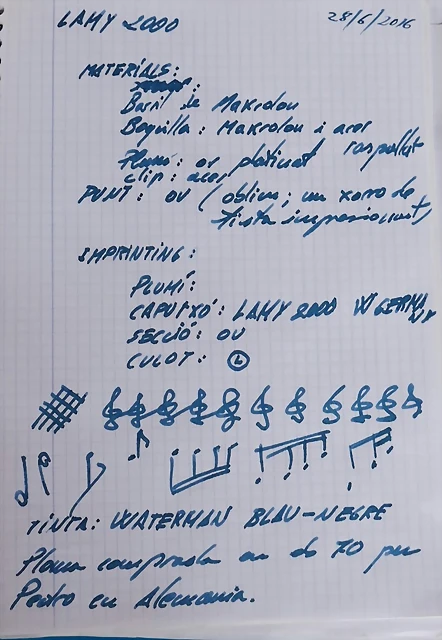 LAMY 2000 28/6/2016
MATERIALS:
Barril de Makrolon
Boquilla: Makrolon i acer
Plumí: or platinat raspallat
clip: acer
PUNT: OV (oblicu; un xorro de
tinta impresionant)
IMPRINTING:
PLUMÍ:
CAPUTXÓ: LAMY 2000 W GERMA
NY
SECCIÓ: OV
CULOT: L
TINTA: WATERMAN BLAU-NEGRE
Ploma comprada 70 per
Pedro en Alemania.